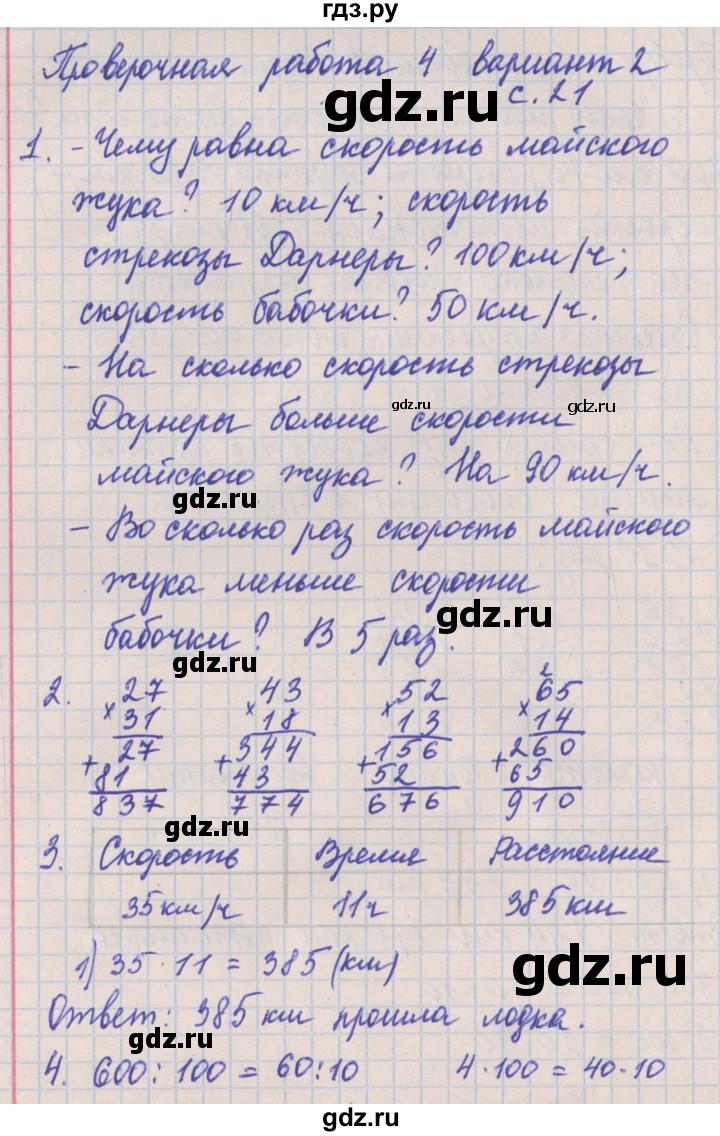 гдз.ру
Проверочная работа 4 вариант 2
gdz.ru с. 21
1. - Чему равна скорость майского
жука? 10 км/ч; скорость
стрекозы Дарнеры? 100 км/ч;
gdz.ru
скорость бабочки? 50 км/ч.
- На сколько скорость стрекозы
gdz.ru gdz.ru
Дарнеры больше скорости
майского жука? На 90 км/ч.
gdz.ru
- Во сколько раз скорость майского
жука меньше скорости
gdz.ru
бабочки? В 5 раз.
gdz.ru
2. 27 43 52 2 65
× 31 × 18 × 13 × 14
+ 27 + 344 + 156 + 260
81 43 52 65
837 774 676 910
gdz.ru
3. Скорость Время Расстояние
35 км/ч 11 ч 385 км
1) 35 · 11 = 385 (км)
gdz.ru
Ответ: 385 км прошла лодка.
gdz.ru
4. 600 : 100 = 60 : 10 4 · 100 = 40 · 10
gdz.ru